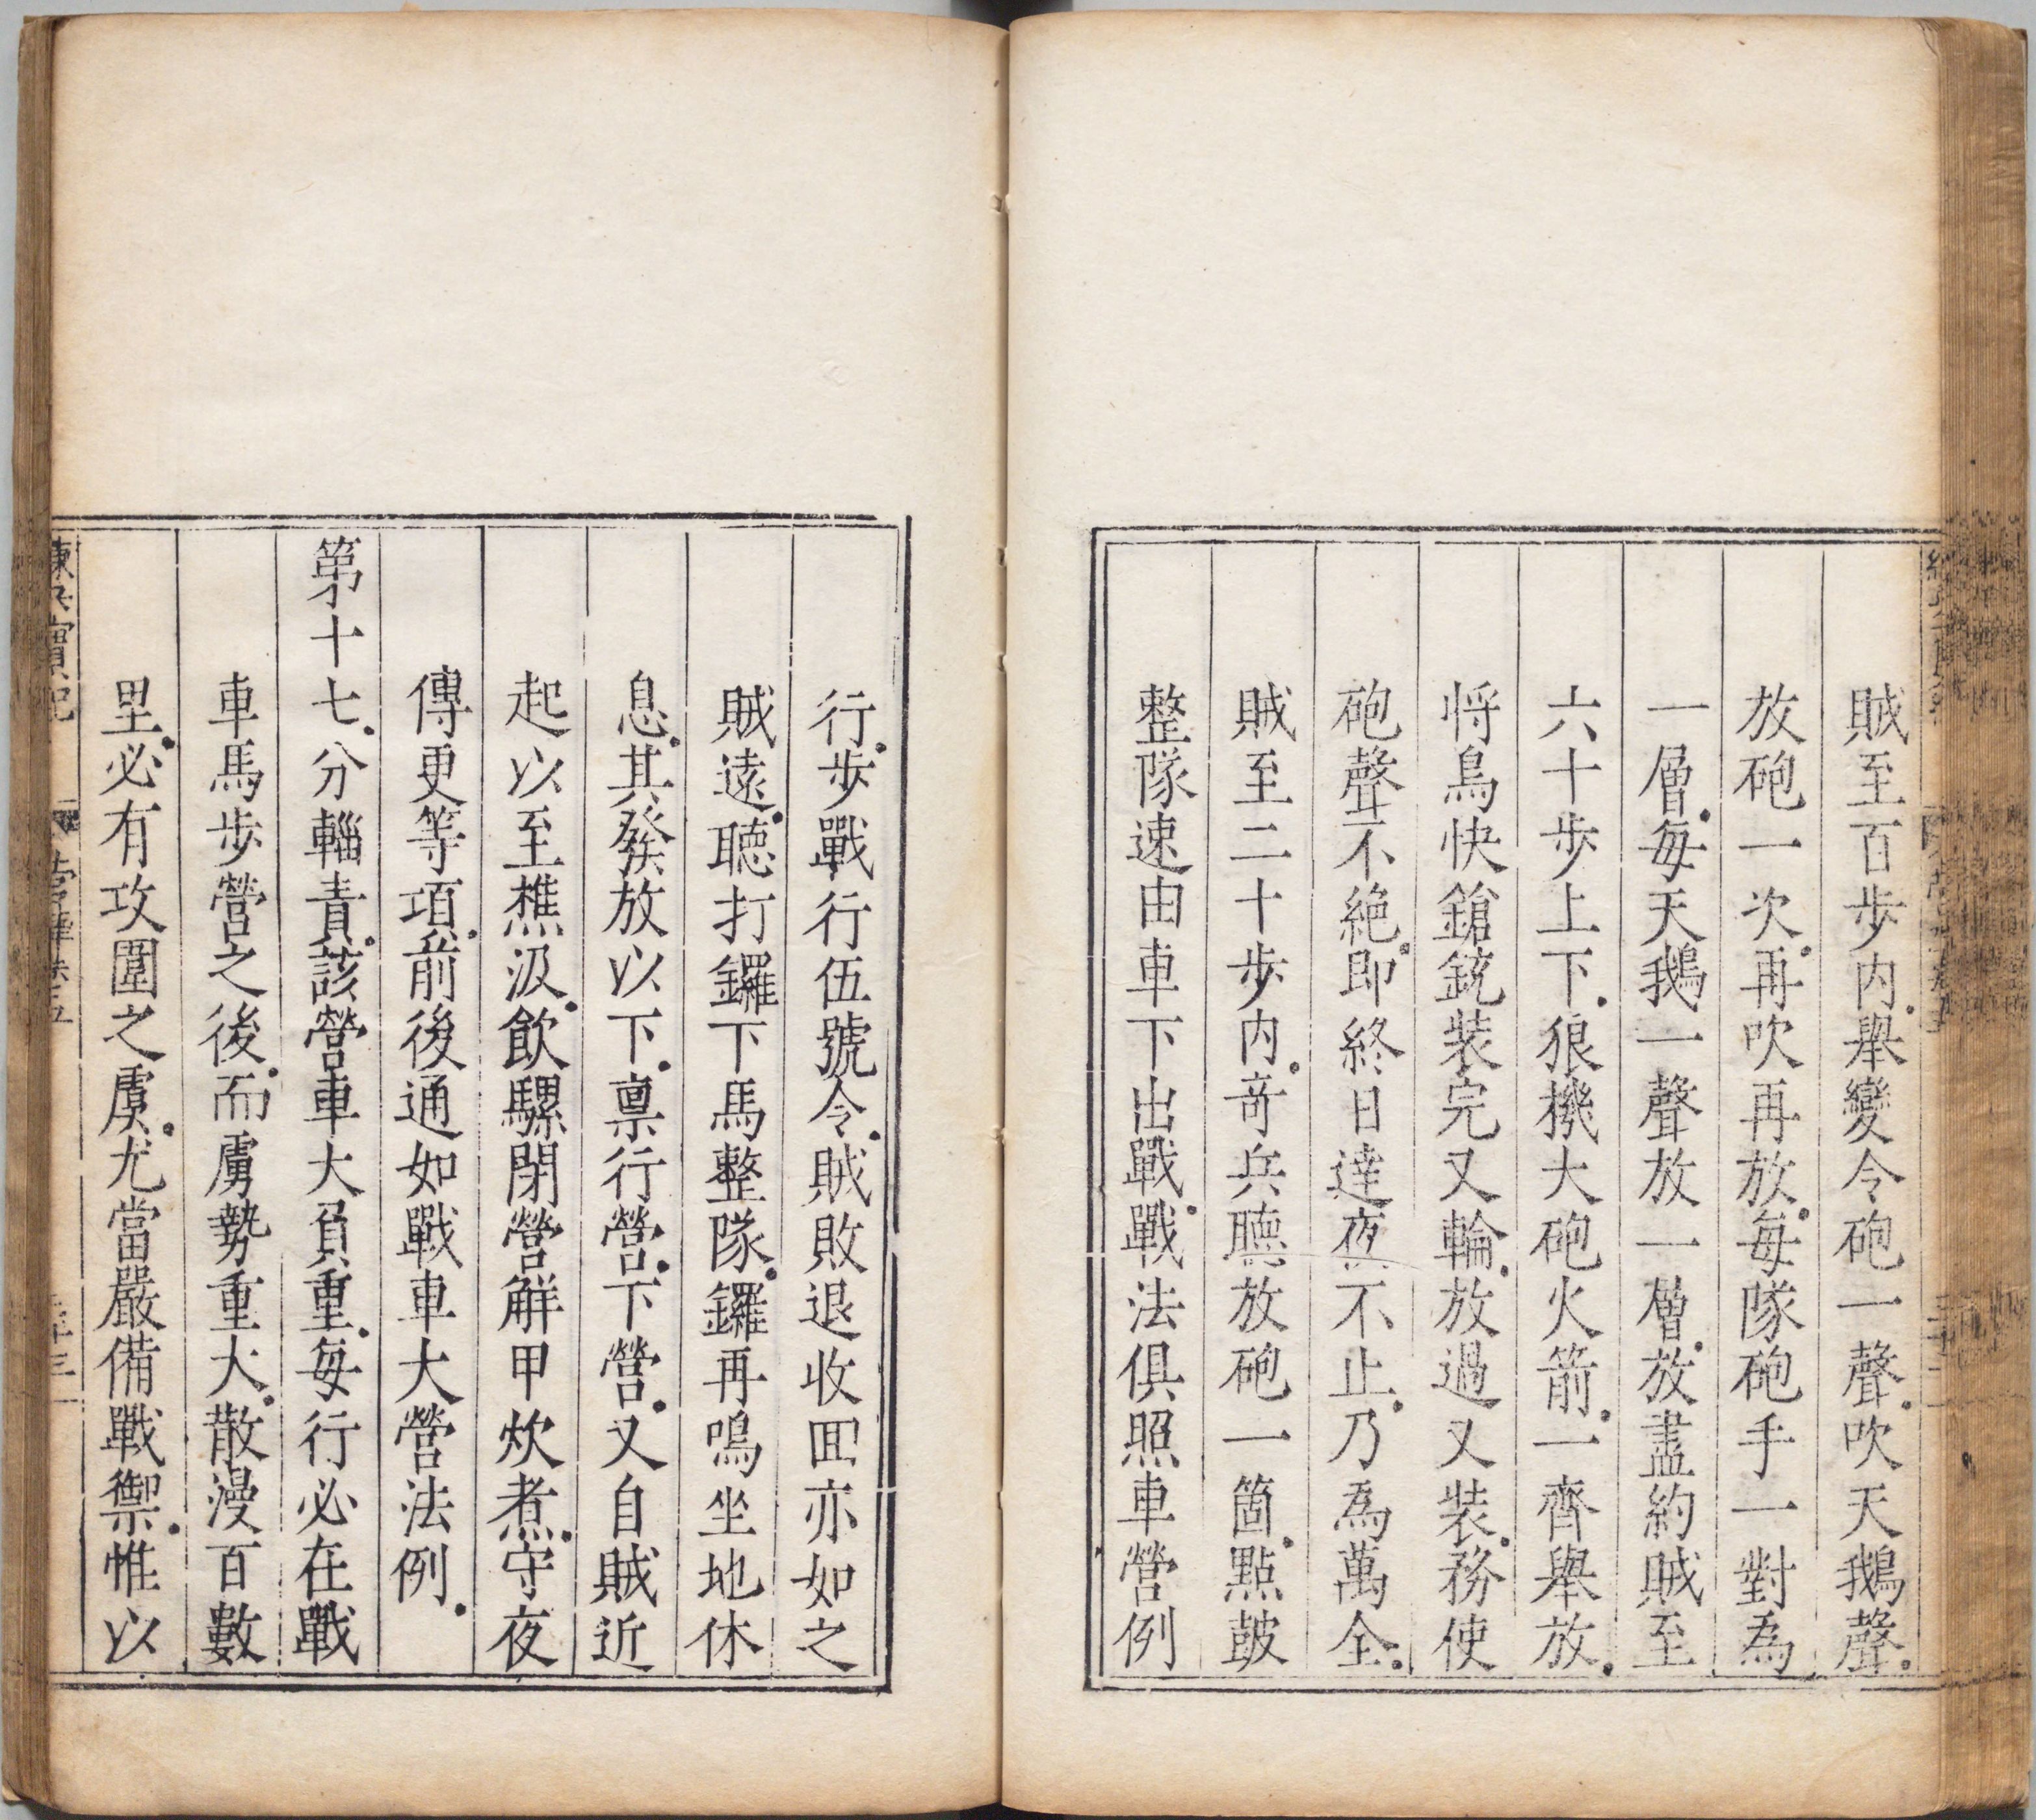 賊至百歩内舉變令砲一聲吹天鵝聲
放砲一次再吹再放毎隊砲手一對為
一層毎天鵝一聲放一層放盡約賊至
六十歩上下狼機大砲火箭一齊舉放
将鳥快鎗銃装完又輪放過又装務使
砲聲不絶即終日達夜不止乃爲萬全
賊至二十歩内竒兵聽放砲一箇點皷
整隊速由車下出戰戰法俱照車營例
行歩戰行伍號令賊敗退收囬亦如之
賊遠聽打鑼下馬整隊鑼再鳴坐地休
息其發放以下禀行營下營又自賊近
起以至樵汲飲騾閉營解甲炊煮守夜
傳更等項前後通如戰車大營法例
第十七分輜責該營車大負重毎行必在戰
車馬歩營之後而虜勢重大散漫百數
里必有攻圍之虜尤當嚴備戰禦惟以
練兵實紀